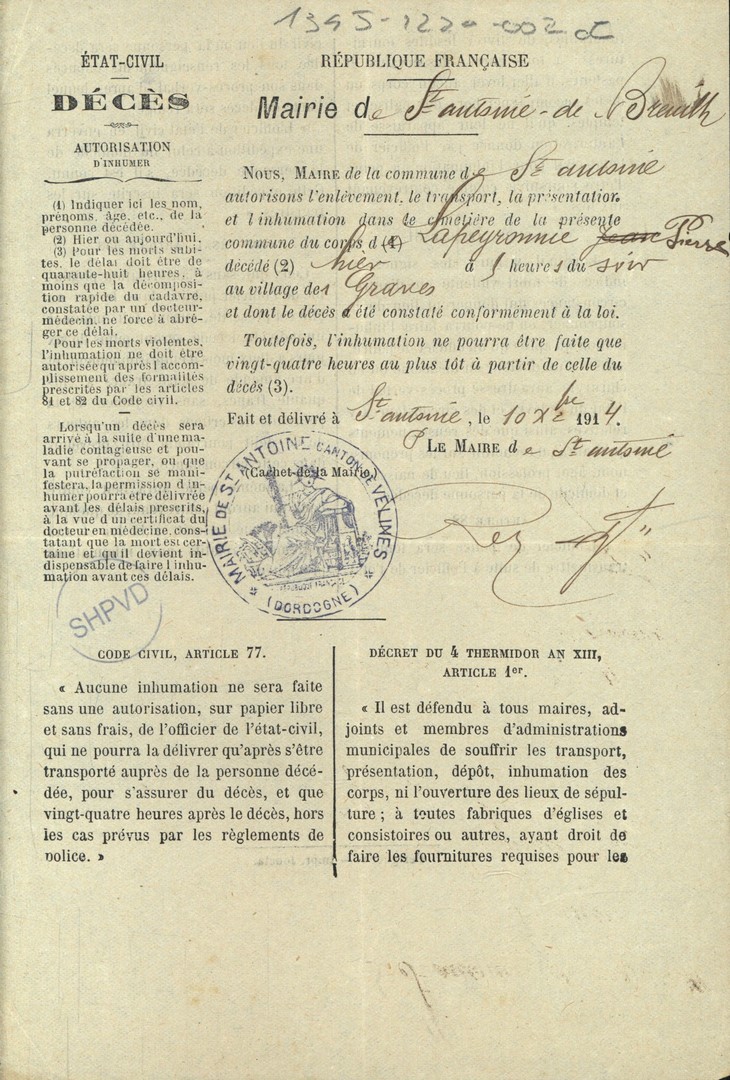 1395-1220-002
ÉTAT-CIVIL
DÉCÈS
AUTORISATION
D'INHUMER
(1) Indiquer ici les nom,
prénoms, âge, etc., de la
personne décédée.
(2) Hier ou aujourd'hui.
(3) Pour les morts subi-
tes, le délai doit être de
quarante-huit heures, à
moins que la décomposi-
tion rapide du cadavre,
constatée par un docteur-
médecin, ne force à abré-
ger ce délai.
Pour les morts violentes,
l'inhumation ne doit être
autorisée qu'après l'accom-
plissement des formalités
prescrites par les articles
81 et 82 du Code civil.
Lorsqu'un décès sera
arrivé à la suite d'une ma-
ladie contagieuse et pou-
vant se propager, ou que
la putréfaction se mani-
festera, la permission d'in-
humer pourra être délivrée
avant les délais prescrits,
à la vue d'un certificat du
docteur en médecine, cons-
tatant que la mort est cer-
taine et qu'il devient in-
dispensable de faire l'inhu-
mation avant ces délais.
SHPVD
RÉPUBLIQUE FRANÇAISE
Mairie de St antoine-de Breuilh
NOUS, MAIRE de la commune de St antoine
autorisons l'enlèvement, le transport, la présentation
et l'inhumation dans le cimetière de la présente
commune du corps d (1) Lapeyronnie Jean Pierre
décédé (2) hier à 5 heures du soir
au village des Graves
et dont le décès a été constaté conformément à la loi.
Toutefois, l'inhumation ne pourra être faite que
vingt-quatre heures au plus tôt à partir de celle du
décès (3).
Fait et délivré à St antoine, le 10 Xbre 1914.
P LE MAIRE de St antoine
(Cachet de la Mairie)
MAIRIE DE ST ANTOINE CANTON DE VÉLINES
(DORDOGNE)
CODE CIVIL, ARTICLE 77.
« Aucune inhumation ne sera faite
sans une autorisation, sur papier libre
et sans frais, de l'officier de l'état-civil,
qui ne pourra la délivrer qu'après s'être
transporté auprès de la personne décé-
dée, pour s'assurer du décès, et que
vingt-quatre heures après le décès, hors
les cas prévus par les règlements de
police. »
DÉCRET DU 4 THERMIDOR AN XIII,
ARTICLE 1er.
« Il est défendu à tous maires, ad-
joints et membres d'administrations
municipales de souffrir les transport,
présentation, dépôt, inhumation des
corps, ni l'ouverture des lieux de sépul-
ture ; à toutes fabriques d'églises et
consistoires ou autres, ayant droit de
faire les fournitures requises pour les